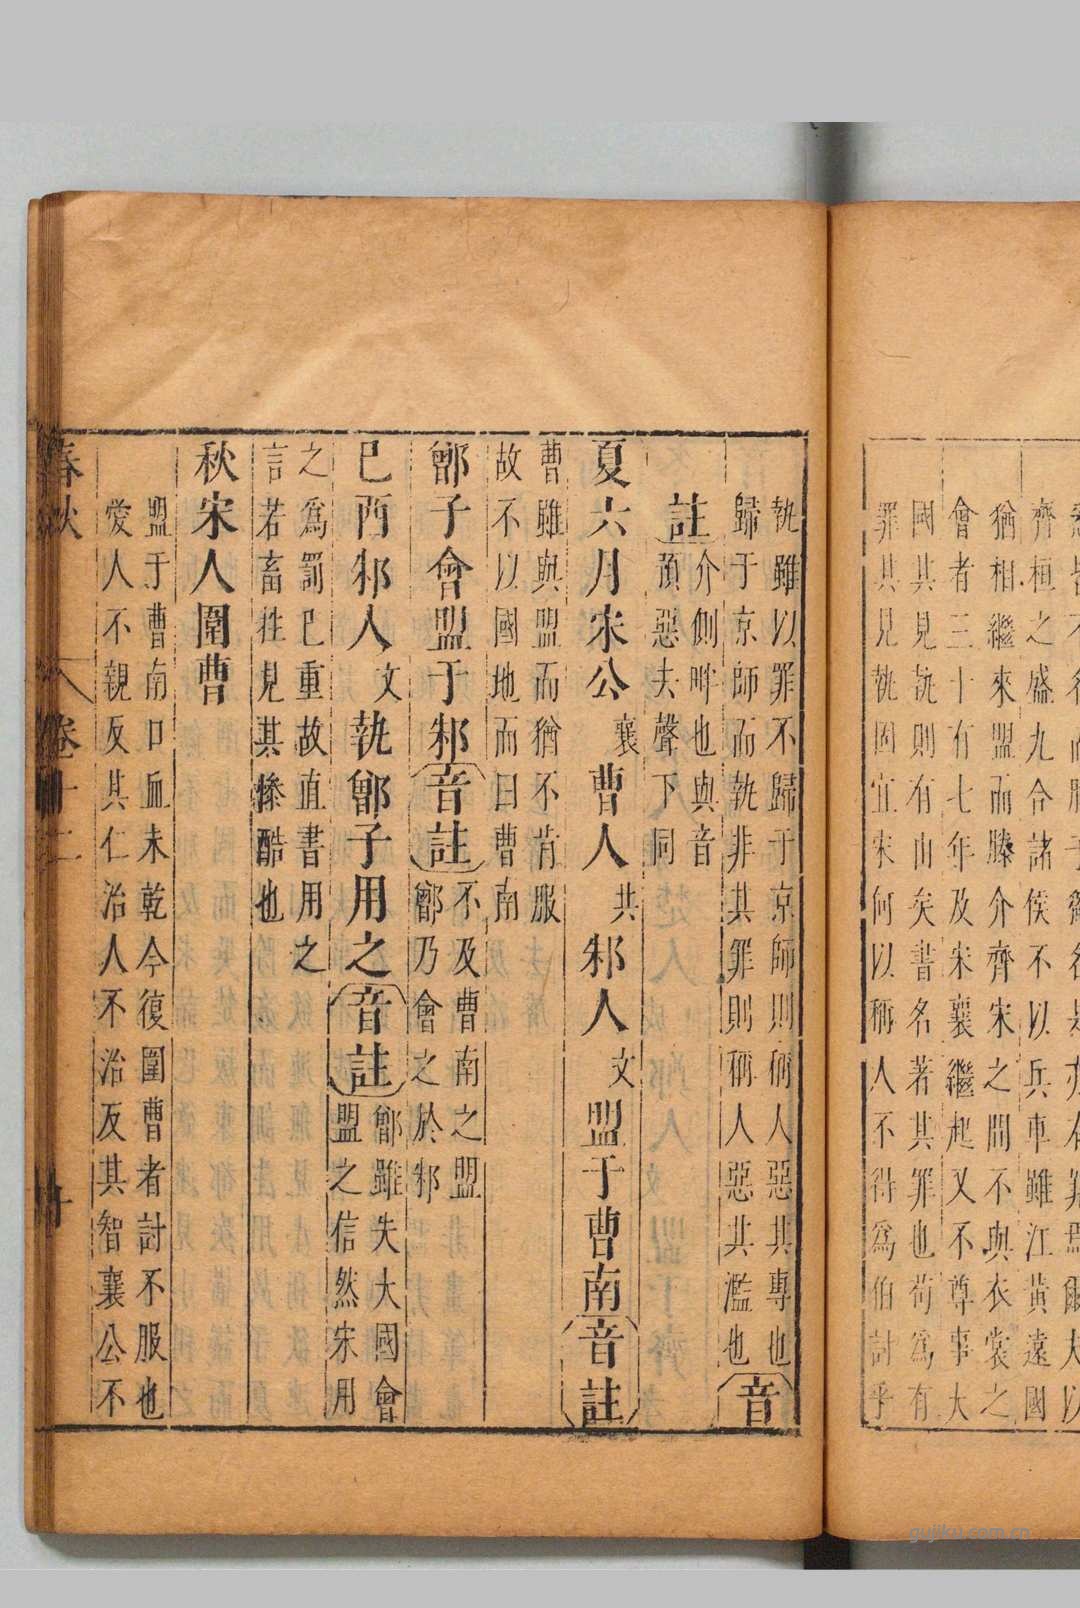 齊桓之盛九合諸侯不以兵車雖江黃遠國
猶相繼來盟而滕介齊宋之間不與衣裳之
會者三十有七年及宋襄繼起又不尊事大
國其見執則有由矣書名著其罪也苟爲有
罪其見執固宜宋何以稱人不得爲伯討乎
執雖以罪不歸于京師則稱人惡其專也
歸于京師而執非其罪則稱人惡其濫也
音
註
介側畔也與音
預惡去聲下同
夏六月宋公襄曹人共邾人文盟于曹南音註
曹雖與盟而猶不肯服
故不以國地而曰曹南
鄫子會盟于邾音註
不及曹南之盟
鄫乃會之於邾
己酉邾人文執鄫子用之音註
鄫雖失大國會
盟之信然宋用
之爲罰已重故直書用之
言若畜牲見其慘酷也
秋宋人圍曹
盟于曹南口血未乾今復圍曹者討不服也
愛人不親反其仁治人不治反其智襄公不
春秋
卷十二